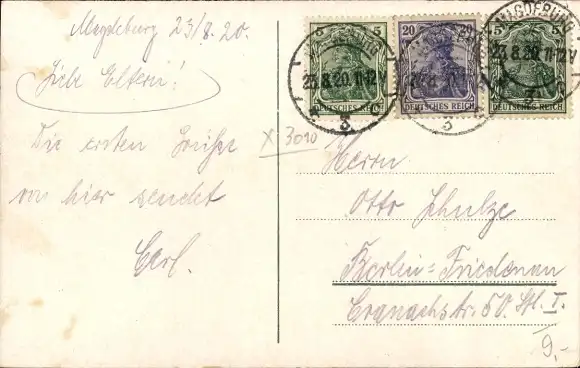 Magdeburg 23/8.20.
Liebe Eltern!
Die ersten Grüße
von hier sendet
Carl.
5 5
DEUTSCHES REICH
20
DEUTSCHES REICH
5 5
DEUTSCHES REICH
MAGDEBURG
23.8.20.11-12V
23.8.20.11-12V
x 3010
Herrn
Otto Schulze
Berlin=Friedenau
Cranachstr. 50. I.
9,-